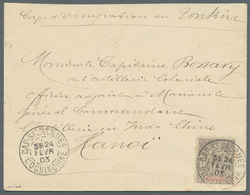 Corps d'occupation du Tonkin
Monsieur le Capitaine Bossavy
de l'artillerie Coloniale
officier adjoint à Monsieur le
Général Commandant
l'artillerie en Indo-Chine
Hanoï
CAP-ST-JACQUES
24
FEVR
03
COCHINCHINE